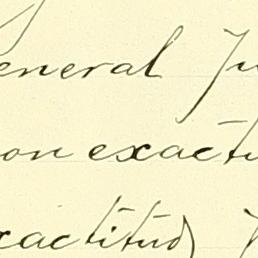 eneral Ju
on exactu
xactitud